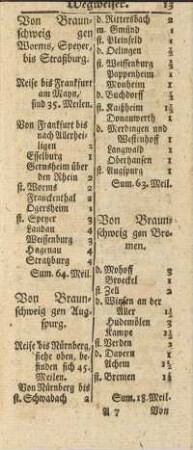 Wegweiser. 13
Von Braun-
schweig gen
Worms, Speyer,
bis Straßburg.
Reise bis Franckfurt
am Mayn,
sind 35. Meilen.
Von Franckfurt bis
nach Allerhei-
ligen 2
Esselburg 1
Gernsheim über
den Rhein 2
st. Worms 2
Franckenthal 2
Ogersheim 1
st. Speyer 3
Landau 4
Weissenburg 3
Hagenau 4
Straßburg 4
Sum. 64. Meil.
Von Braun-
schweig gen Aug-
spurg.
Reise bis Nürnberg,
siehe oben, be-
finden sich 45-
Meilen.
Von Nürnberg bis
st. Schwabach 2
d. Rittersbach 2
m. Gmünd 1
st. Pleinfeld 1
d. Oelingen
st. Weissenburg
Pappenheim
Monheim
d. Buchdorff
st. Kaißheim
Donauwerth 1
d. Merdingen und
Westenhoff 1
Langwaid 1
Oberhausen 1
st. Augspurg 1
Sum. 63. Meil.
Von Braun-
schweig gen Bre-
men.
d. Mohoff 3
Broeckel 1
st. Zell 2
d. Winsen an der
Aller
Hudemölen 3
Kampe
st. Verden 2
d. Davern 1
Achem
st. Bremen
Sum. 18. Meil.
A 7 Von